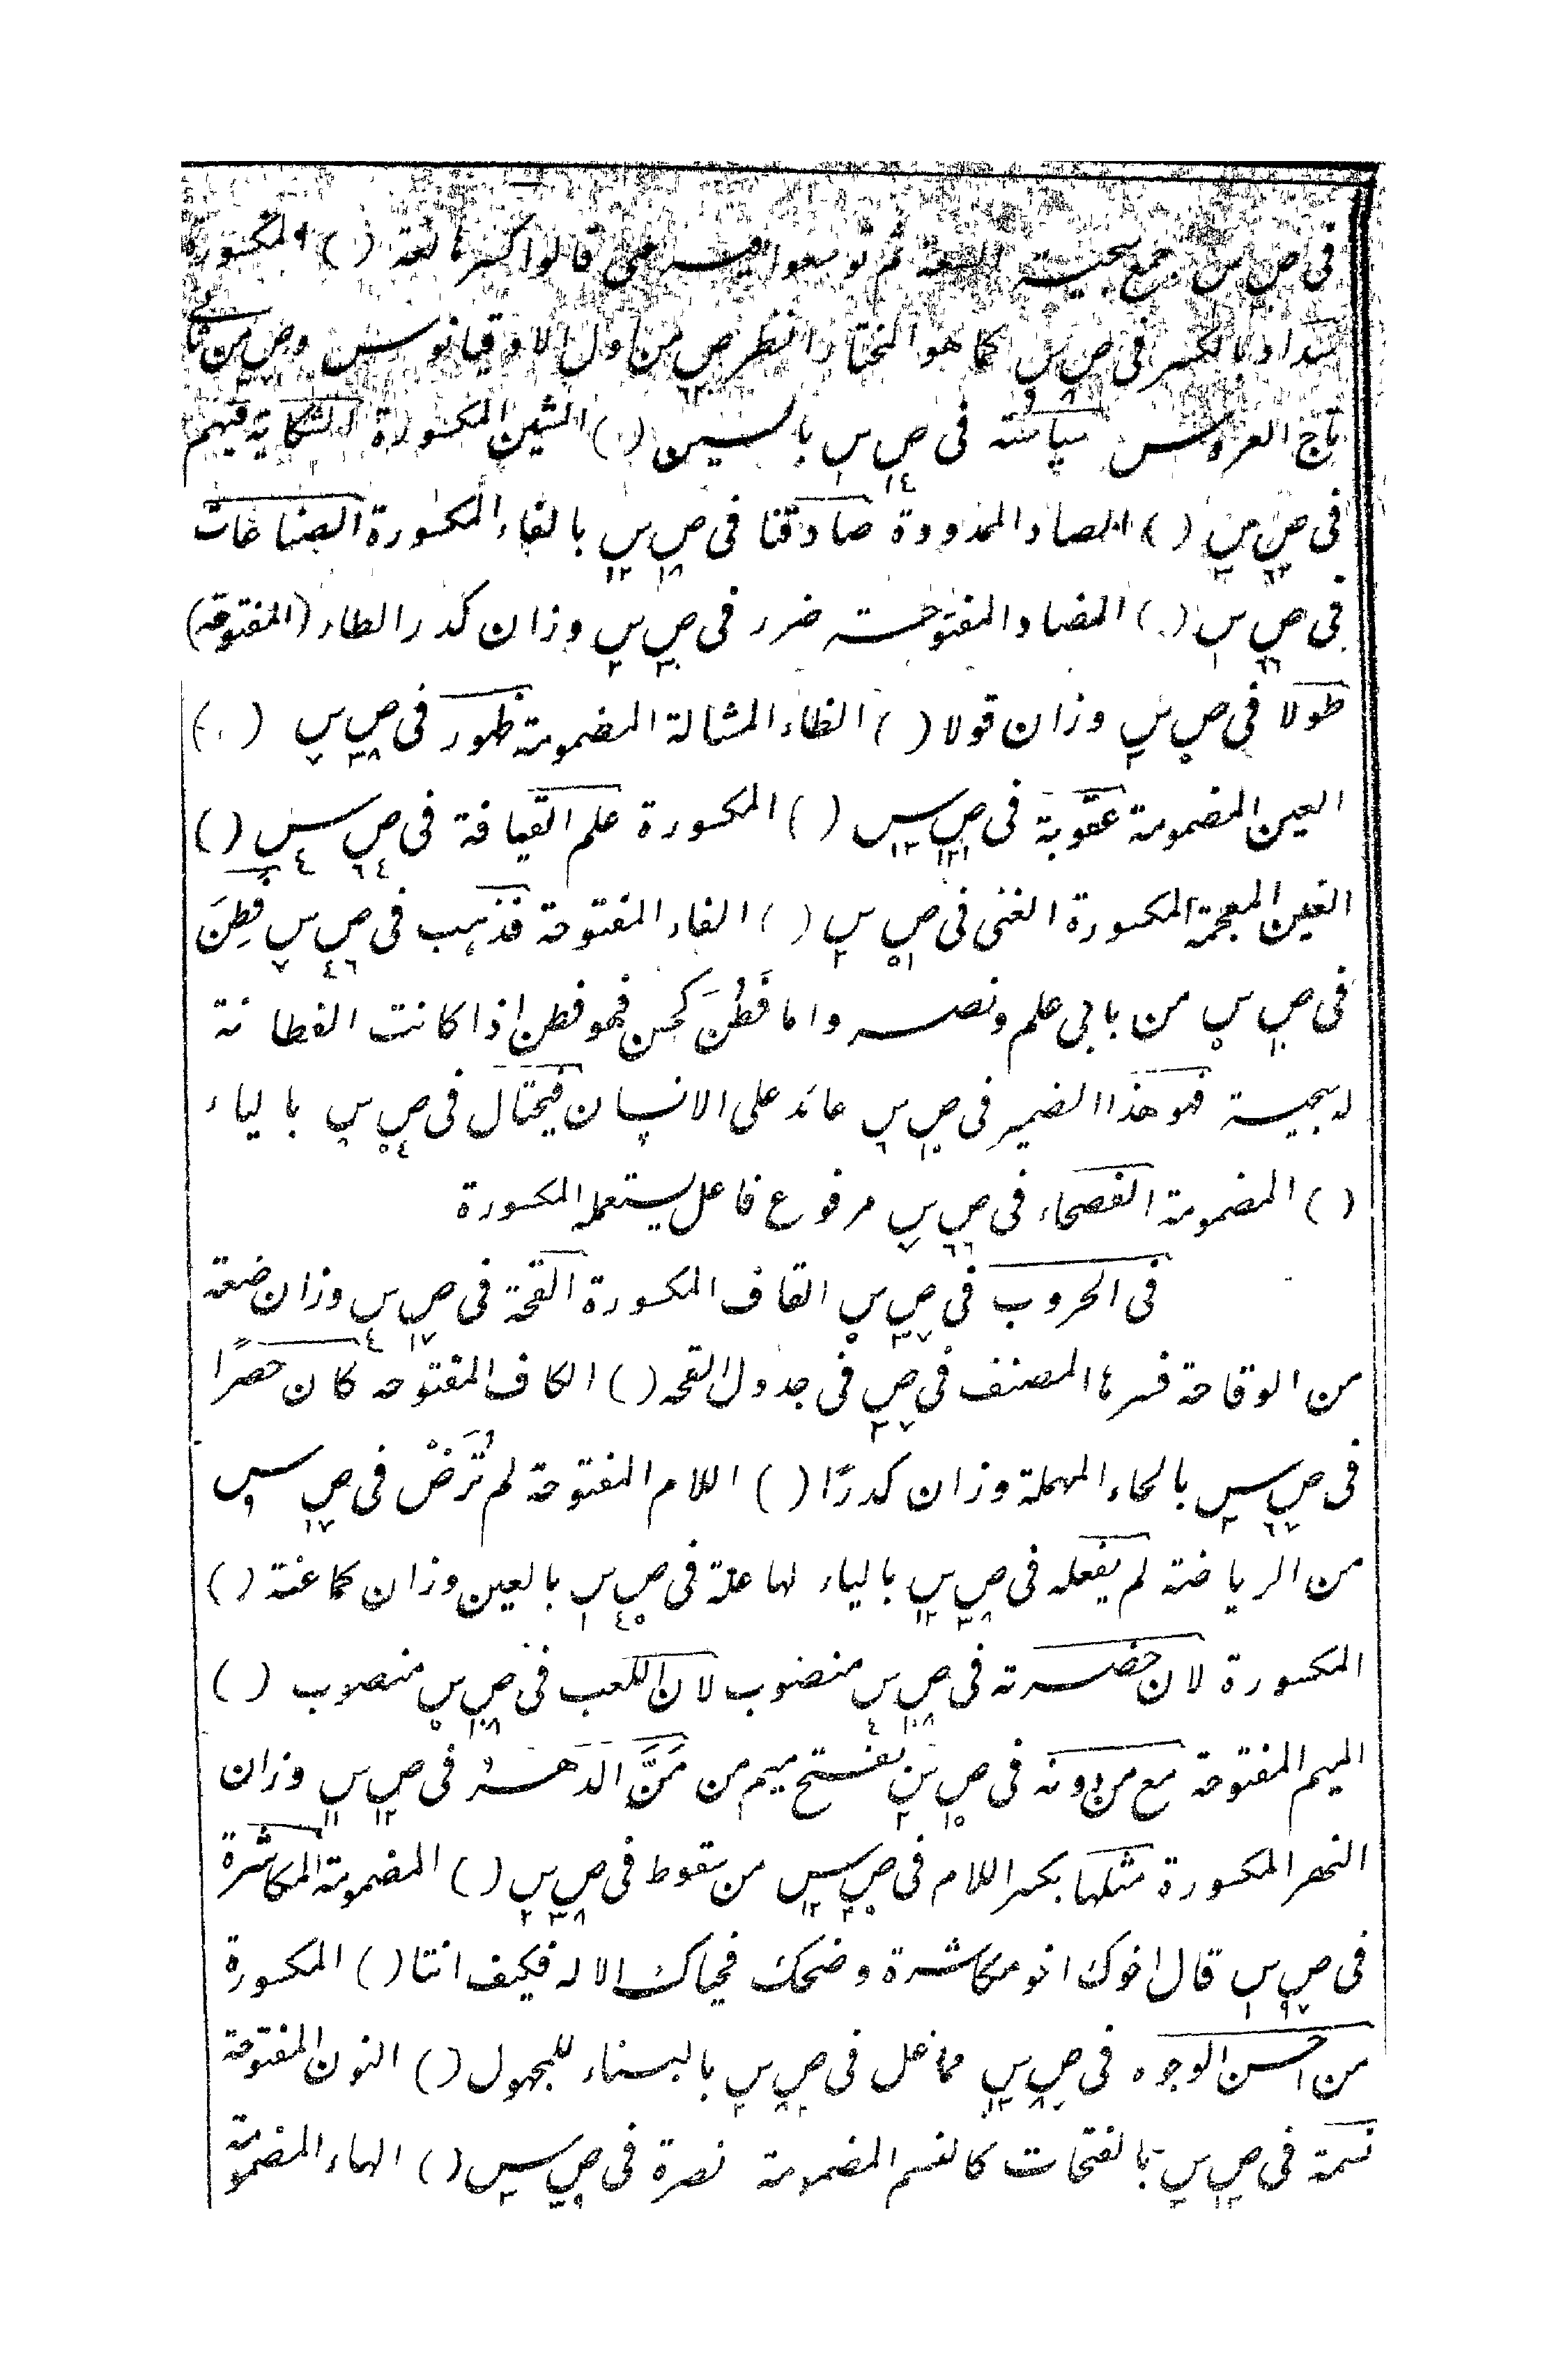 فى ص س جمع سحية السعة ثم توسعوا فيه حتى قالوا كسر مانعة ( ) المكسورة
سداد بالكسر فى ص س كما هو المختار انظر ص من اول الاوقيانوس وص من
تاج العروس سياسته فى ص ١٤ س بالسين ( ) الشين المكسورة الشكاية فيهم
فى ص ٦٢ س ٢ ( ) الصاد الممدودة صادقنا فى ص ١٨ س ١٢ بالفاء المكسورة الصناعات
فى ص ٦٦ س ١ ( ) الضاد المفتوحة ضرر فى ص س ٢ وزان كدر الطاء (المفتوحة)
طولا فى ص س وزان قولا ( ) الظاء المشالة المضمومة ظهور فى ص ٣٨ س ٧ ( )
العين المضمومة عقوبة فى ص ١٣١ س ١٢ ( ) المكسورة علم القيافة فى ص ٦٤ س ٤ ( )
الغين المعجمة المكسورة الغنى فى ص ٥١ س ٢ ( ) الفاء المفتوحة فذهب فى ص ٤٦ س ٧ فَطِنَ
فى ص ١٠ س ٥ من بابى علم ونصر واما فَطُنَ كحسن فهو فطن اذا كانت الفطانة
له سجية فهو هذا الضمير فى ص ١٠ س ٦ عائد على الانسان فيحتال فى ص ٥٤ س بالياء
( ) المضمومة الفصحاء فى ص ٦٦ س ٧ مرفوع فاعل يستعمله المكسورة
فى الحروب فى ص ٣٧ س ٥ القاف المكسورة القحة فى ص ١٧ س ٤ وزان ضعة
من الوقاحة فسرها المصنف فى ص ٢٧ فى جدول القحه ( ) الكاف المفتوحه كان حصرًا
فى ص ٦٧ س ٢ بالحاء المهملة وزان كدرًا ( ) اللام المفتوحة لم تُرَضْ فى ص ١٧ س ٩
من الرياضة لم يفعله فى ص ٣٨ س ١٢ بالياء لها علة فى ص ٤٥ س ١ بالعين وزان كماعنة ( )
المكسورة لان حضرته فى ص ١٠٨ س ٤ منصوب لان اللعب فى ص ١٠٨ س ٥ منصوب ( )
الميم المفتوحة مع من دونه فى ص ١٥ س ٢ بفتح ميم من مَنَّ الدهرُ فى ص ١٢ س ١١ وزان
النهر المكسورة مثلها بكسر اللام فى ص ٢٥ س ١٢ من سقوط فى ص ٣٨ س ٢ ( ) المضمومة المكاشرة
فى ص ٩٧ س ١ قال اخوك اخو مكاشرة وضحك فحياك الاله فكيف انتا ( ) المكسورة
من احسن الوجوه فى ص ٨٠ س ١٢ مما عل فى ص س ٢ بالبناء للمجهول ( ) النون المفتوحة
نسمة فى ص ١٢ س ٢ بالفتحات كالنسم المضمومة نصرة فى ص س ٢ ( ) الهاء المضمومة